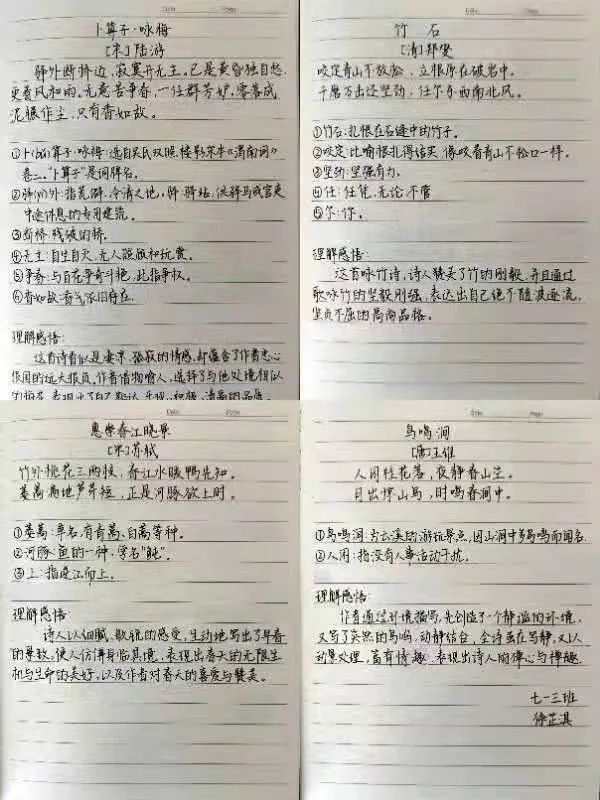 Date Page
卜算子·咏梅
[宋]陆游
驿外断桥边，寂寞开无主。已是黄昏独自愁，
更著风和雨。无意苦争春，一任群芳妒。零落成
泥碾作尘，只有香如故。
①卜(bǔ)算子·咏梅：选自吴氏双照楼影宋本《渭南词》
卷二。"卜算子"是词牌名。
②驿(yì)外：指荒僻、冷清之地。驿：驿站，供驿马或官吏
中途休息的专用建筑。
③断桥：残破的桥。
④无主：自生自灭，无人照顾和玩赏。
⑤争春：与百花争奇斗艳，此指争权。
⑥香如故：香气依旧存在。
理解感悟：
这首诗看似是凄凉、孤寂的情感，却蕴含了作者忠心
报国的远大报负。作者借物喻人，选择了与他处境相似
Date Page
竹石
[清]郑燮
咬定青山不放松，立根原在破岩中。
千磨万击还坚劲，任尔东西南北风。
①竹石：扎根在石缝中的竹子。
②咬定：比喻根扎得结实，像咬着青山不松口一样。
③坚劲：坚强有力。
④任：任凭，无论，不管
⑤尔：你。
理解感悟：
这首咏竹诗，诗人赞美了竹的刚毅，并且通过
歌咏竹的坚毅刚强，表达出自己绝不随波逐流，
坚贞不屈的高尚品格。
Date Page
惠崇春江晓景
[宋]苏轼
竹外桃花三两枝，春江水暖鸭先知。
蒌蒿满地芦芽短，正是河豚欲上时。
①蒌蒿：草名，有青蒿、白蒿等种。
②河豚：鱼的一种，学名"鲀"。
③上：指逆江而上。
理解感悟：
诗人以细腻、敏锐的感受，生动地写出了早春
的景致，使人仿佛身临其境，表现出春天的无限生
机与生命的美好，以及作者对春天的喜爱与赞美。
Date Page
鸟鸣涧
[唐]王维
人闲桂花落，夜静春山空。
月出惊山鸟，时鸣春涧中。
①鸟鸣涧：古云溪的游玩景点，因山涧中多鸟鸣而闻名
②人闲：指没有人事活动干扰。
理解感悟：
作者通过环境描写，先创造了一个静谧的环境，
又写了突然的鸟鸣，动静结合，全诗虽在写静，又以
动景处理，富有情趣，表现出诗人的禅心与禅趣。
七一三班
徐芷淇